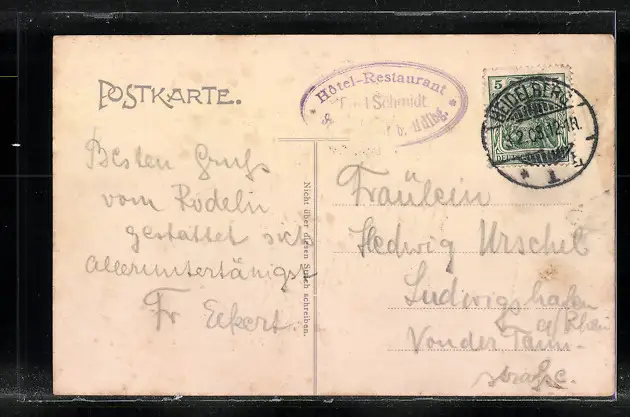 POSTKARTE.
Hôtel-Restaurant
Schmidt
b. Hdlbg.
5
HEIDELBERG
1
Besten Gruß
vom Rodeln
gestattet sich
alleruntertänigst
Fr Eckert.
Nicht über diesen Strich schreiben.
Fräulein
Hedwig Urschel
Ludwigshafen
a/Rhein
Von der Tann-
straße.